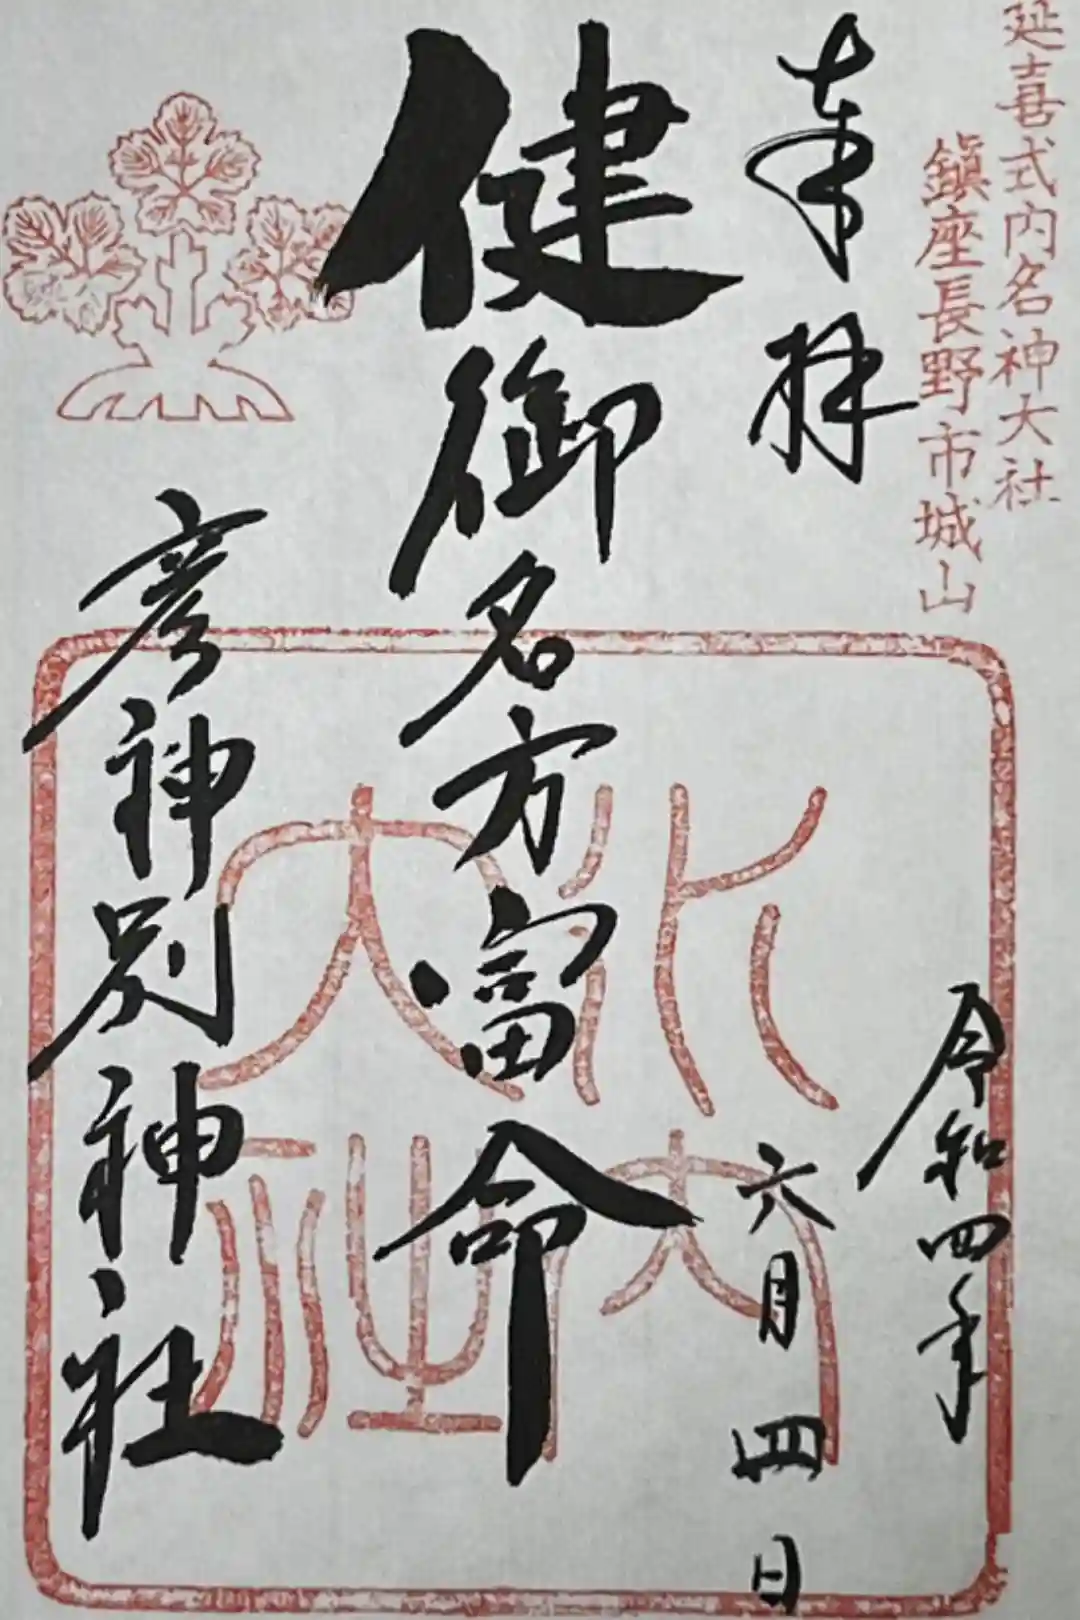 延喜式内名神大社
鎮座長野市城山
奉拝
令和四年
六月四日
健御名方富命
彦神別神社
水内
大社